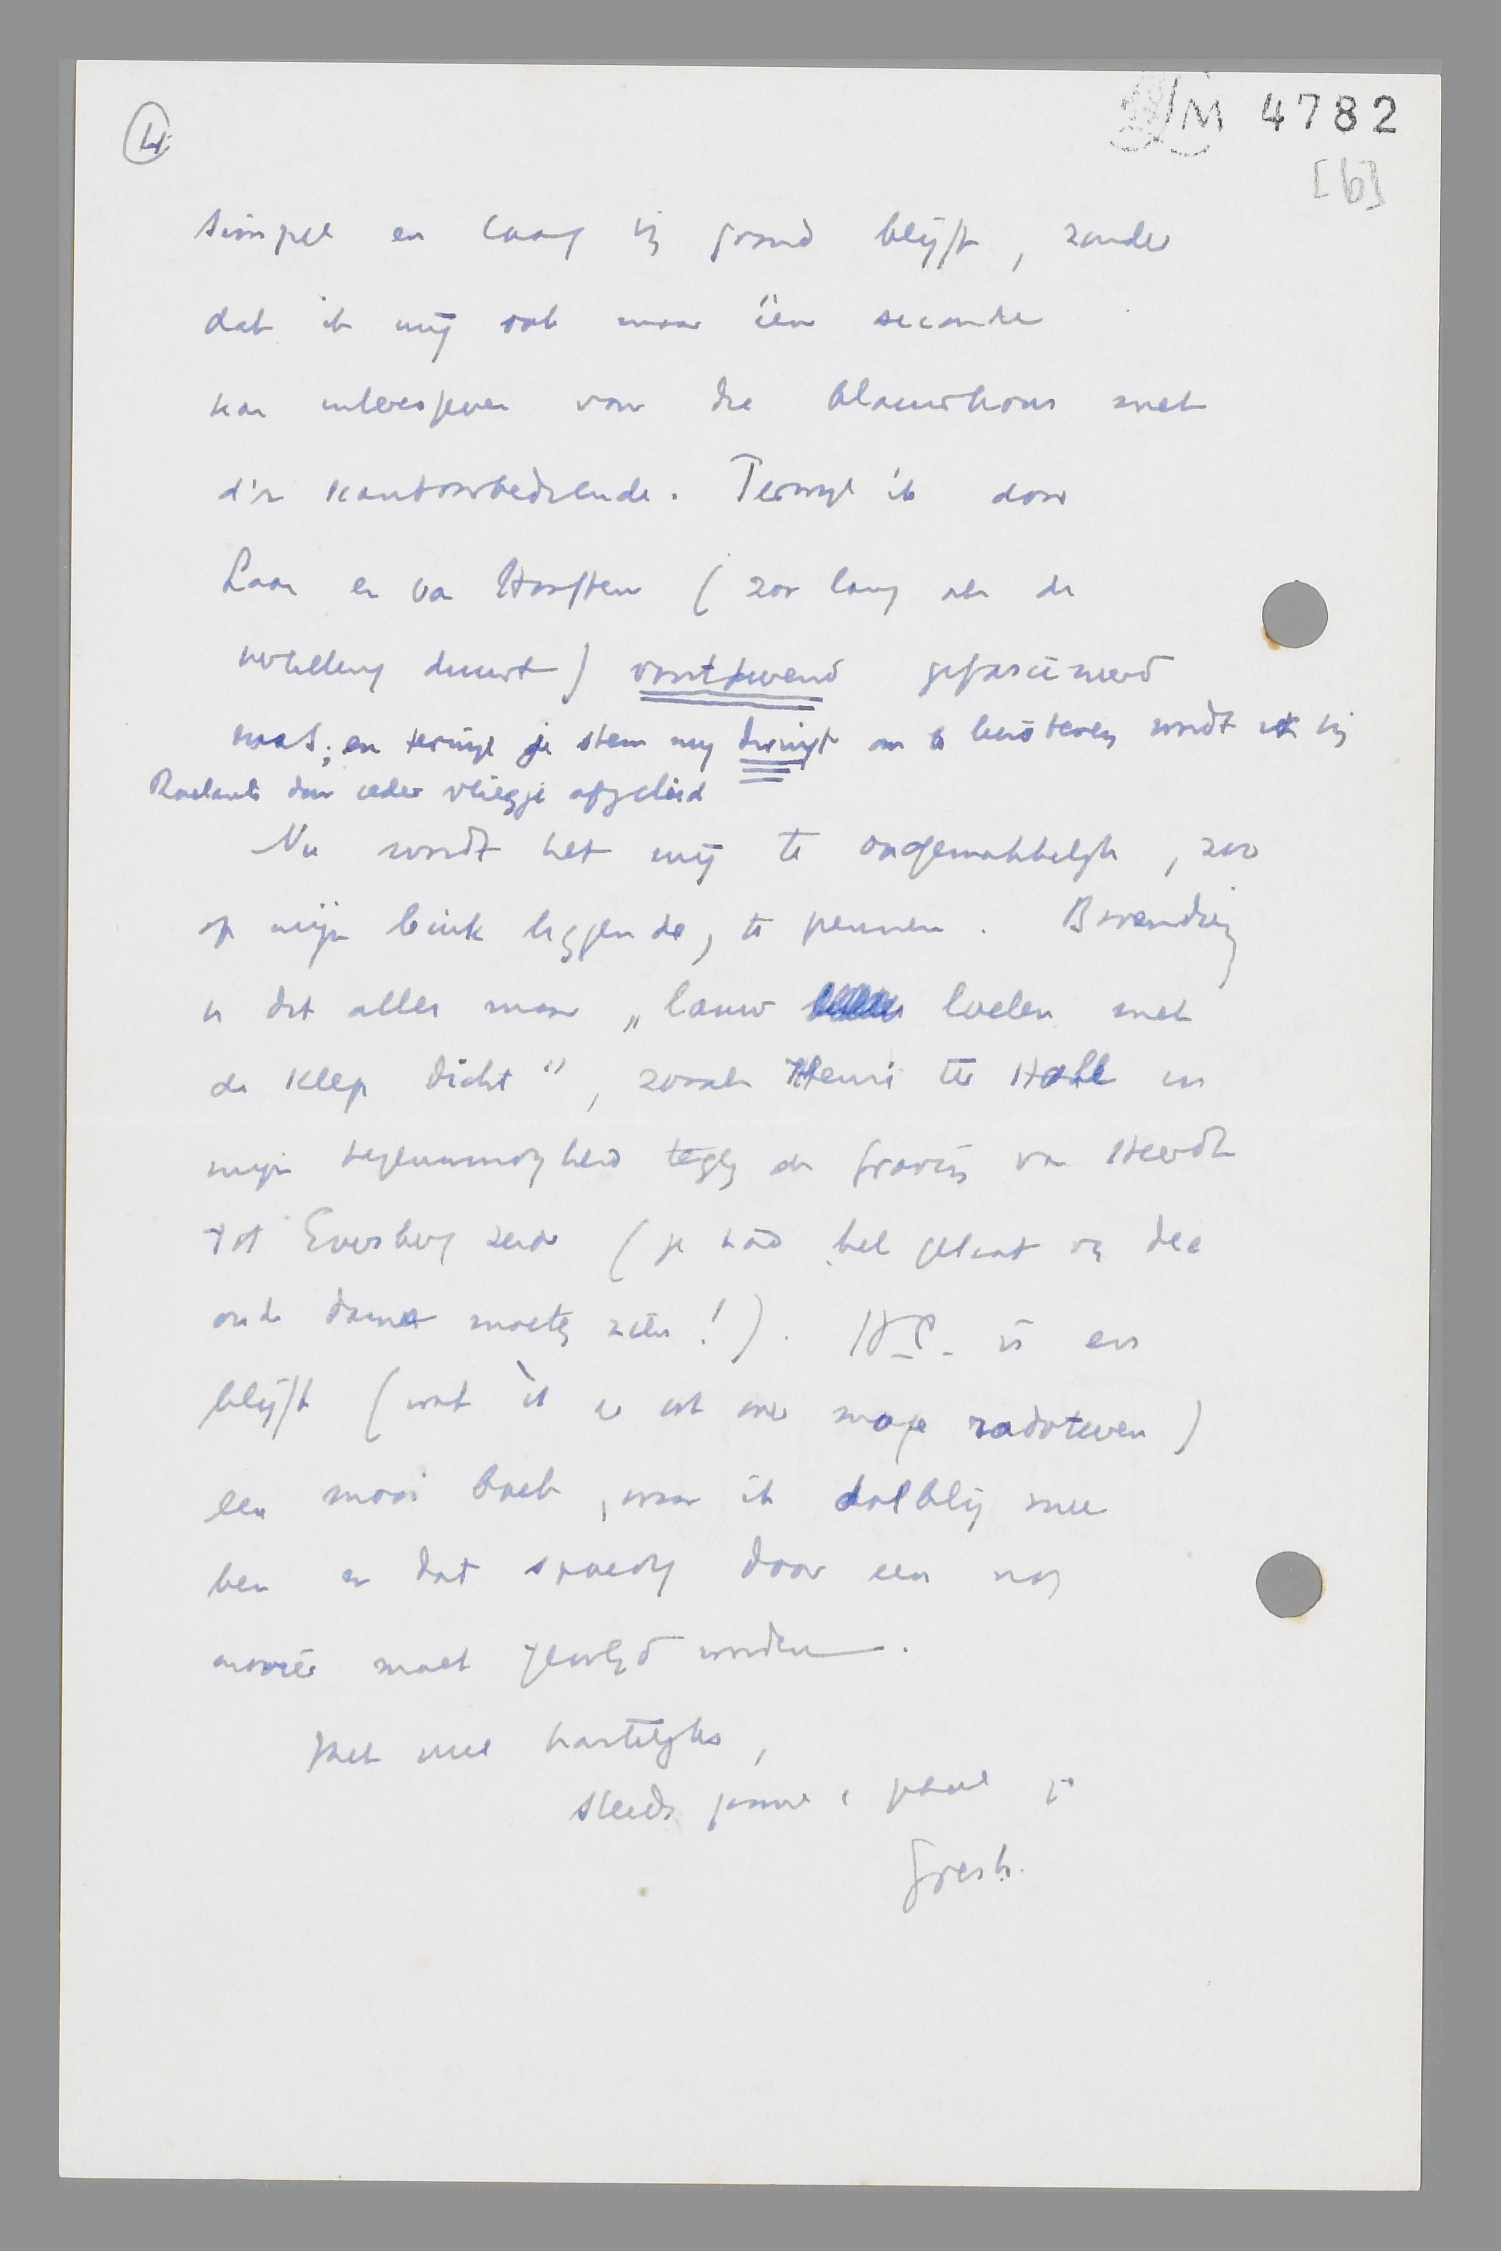 4.
M 4782
[b]
simpel en laag bij grond blijft, zonder
dat ik mij ook maar één seconde
kan interesseren voor die blauwkous met
d'r kantoorbediende. Terwijl ik door
Laar en van Houten (zoo lang als de
vertelling duurt) voortdurend gefascineerd
was; en terwijl je stem mij dwingt om te luisteren wordt ik bij
Roelants door ieder vliegje afgeleid
Nu wordt het mij te ongemakkelijk, zoo
op mijn buik liggende, te pennen. Bovendien
is dit alles maar „lauw loelen met
de klep dicht", zooals Henri ter Hall in
mijn tegenwoordigheid tegen de gravin van Heerdt
tot Eversberg zeide (je had het gelaat van die
oude dame moeten zien!). H.P. is en
blijft (wat ik er ook over moge radoteeren)
een mooi boek, waar ik dolblij mee
ben en dat spoedig door een nog
mooier moet gevolgd worden.
Met veel hartelijks,
steeds jouw
Gresh.